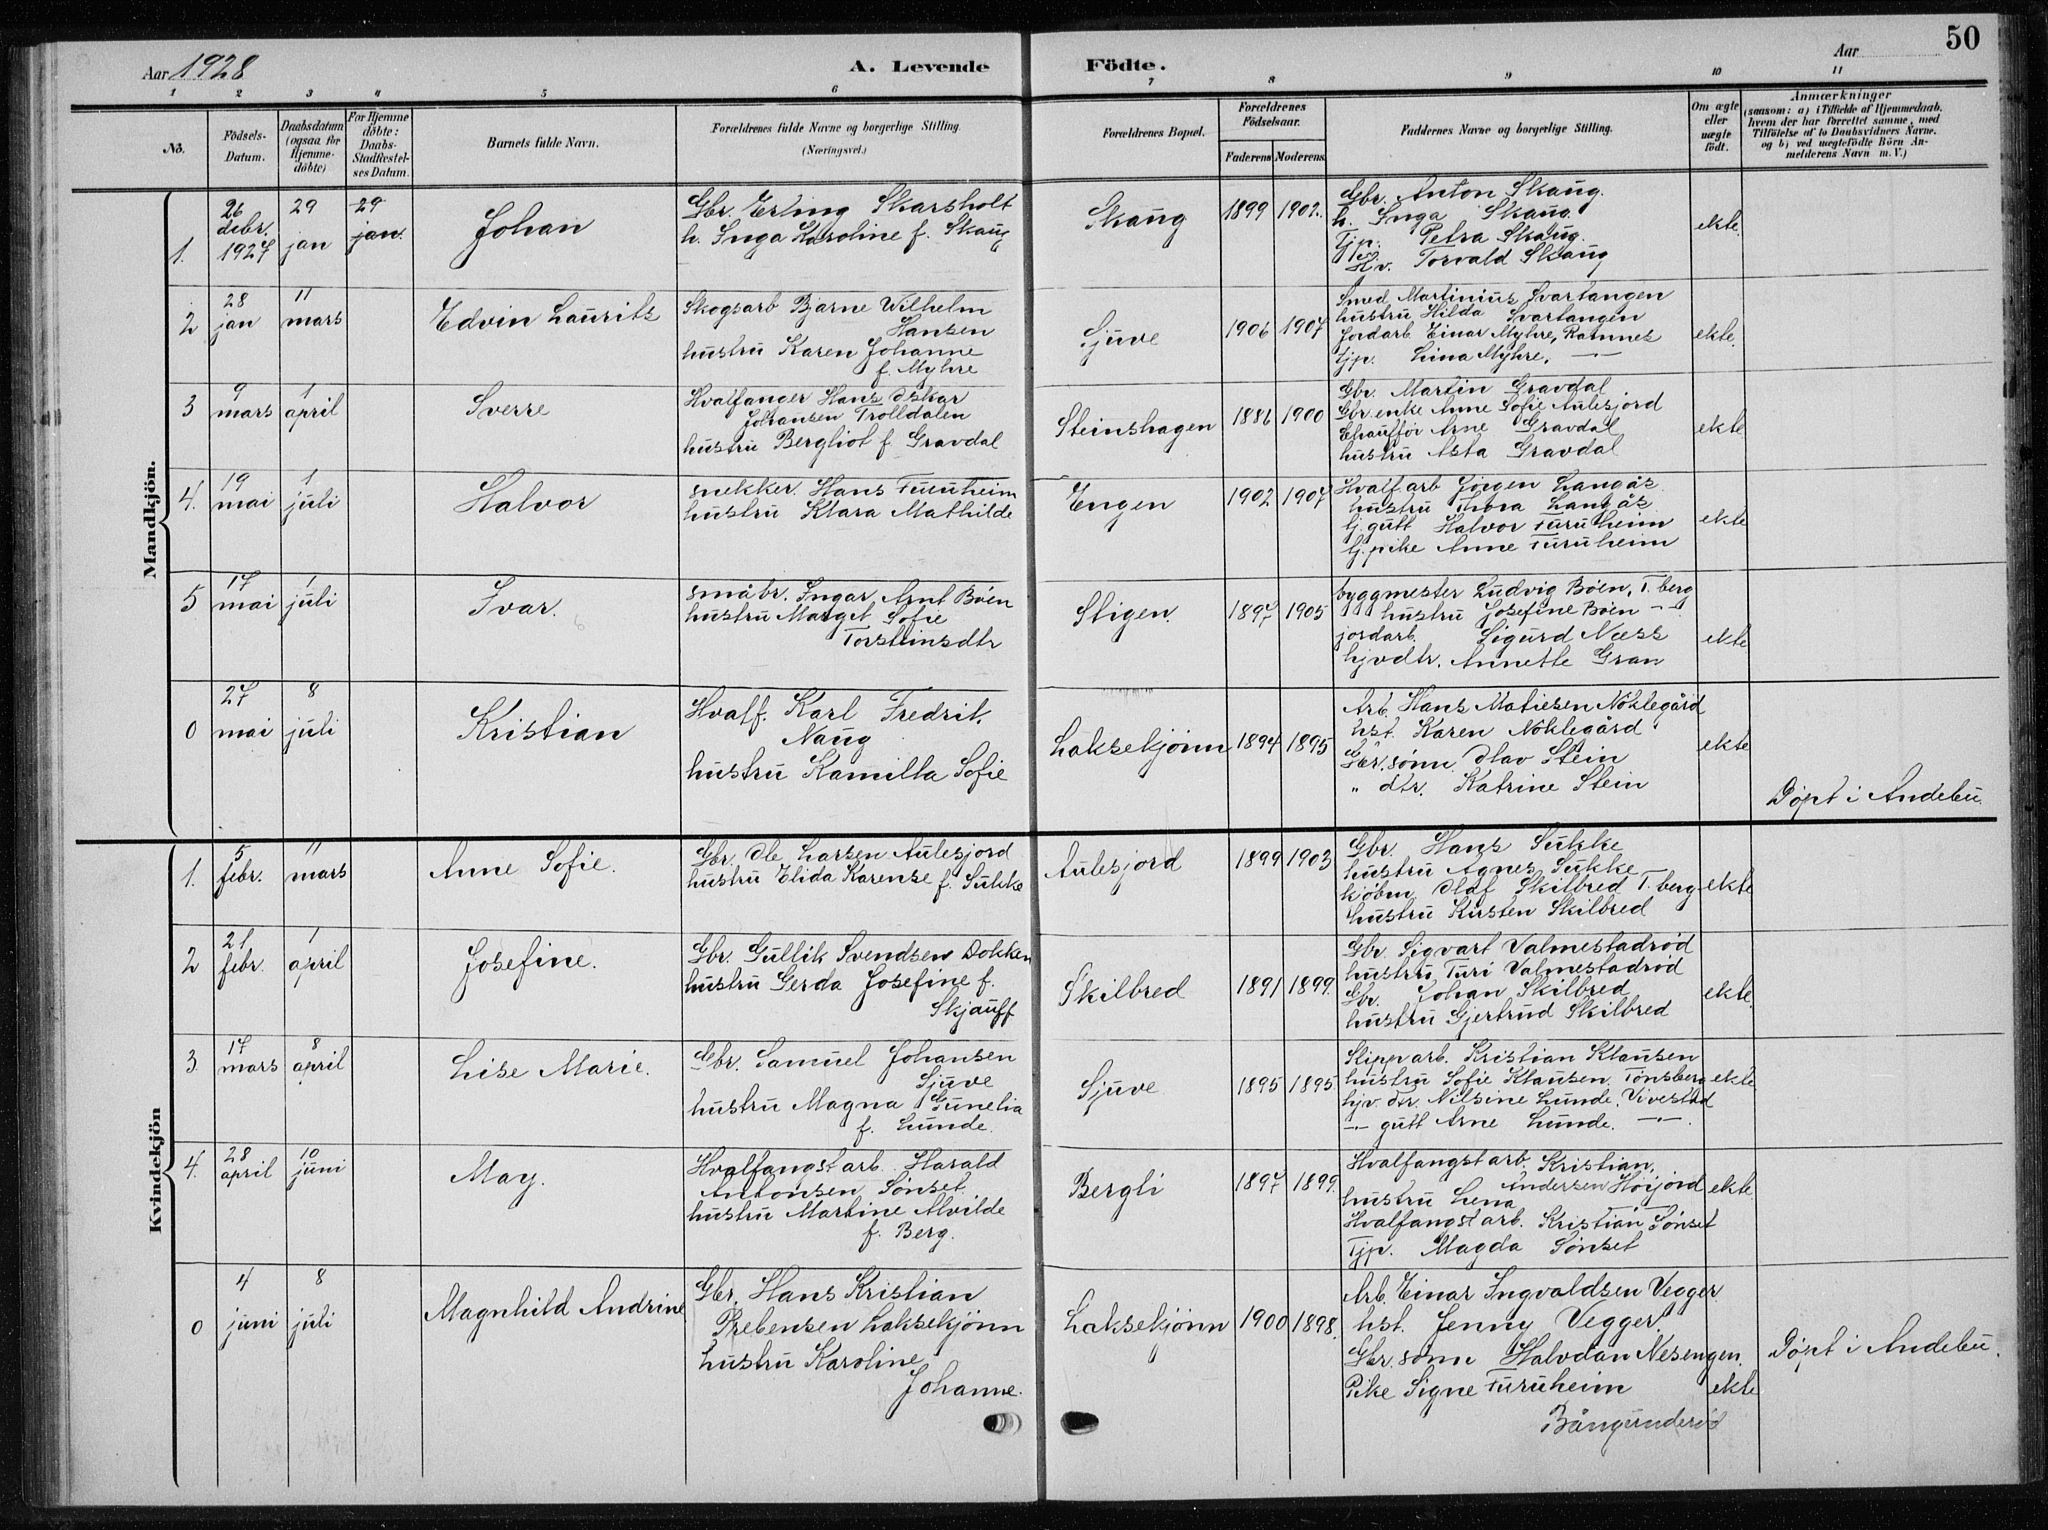 50
Aar 1928
A. Levende Födte.
Aar
1 2 3 4 5 6 7 8 9 10 11
No.
Födsels-Datum.
Daabsdatum (ogsaa for Hjemme-döbte)
For Hjemme döbte: Daabs-Stadfæstel-ses Datum.
Barnets fulde Navn.
Forældrenes fulde Navne og borgerlige Stilling.
(Næringsvei.)
Forældrenes Bopæl.
Forældrenes Födselsaar.
Faderens Moderens
Faddernes Navne og borgerlige Stilling.
Om ægte eller uægte födt.
Anmærkninger
(saasom: a) i Tilfælde af Hjemmedaab, hvem der har forrettet samme, med Tilföielse af to Daabsvidners Navne. og b) ved uægtefödte Börn An-melderens Navn m. V.)
Mandkjön.
1. 26 debr. 1927
29 jan
29 jan.
Johan
Gbr. Erling Skarsholt
h. Inga Karoline f. Skaug
Skaug
1899 1902.
Gbr. Anton Skaug.
h. Inga Skaug.
Tjp. Petra Skaug.
Torvald Skaug
ekte.
2 28 jan
11 mars
Edvin Laurits
Skogsarb Bjarne Wilhelm
Hansen
hustru Karen Johanne
f. Myhre
Sjuve
1906 1907
Smed Martinius Svartangen
hustru Hilda Svartangen
Jordarb Einar Myhre, Ramnes
tjp. Lina Myhre, —"—
ekte.
3 9 mars
1 april
Sverre
Hvalfanger Hans Oskar
Johansen Trolldalen
hustru Bergliot f. Gravdal
Steinshagen
1886 1900
Gbr. Martin Gravdal
Gbr. enke Anne Sofie Aulesjord
Chauffør Arne Gravdal
hustru Asta Gravdal
ekte
4. 19 mai
1 juli
Halvor
snekker. Hans Furuheim
hustru Klara Mathilde
Engen
1902 1907
Hvalf.arb Jörgen Langås.
hustru Thora Langås.
tj. gutt Halvor Furuheim
tj. pike Anne Furuheim
ekte
5 17 mai
1 juli
Ivar.
småbr. Ingar Arnt Böen
hustru Marget Sofie
Torsteinsdtr
Stigen.
1897 1905
byggmester Ludvig Böen, T.berg
hustru Josefine Böen —"—
jordarb. Sigurd Næss
hjvdtr. Annette Gran
ekte
0 27 mai
8 juli
Kristian
Hvalf. Karl Fredrik.
Naug
hustru Kamilla Sofie
Laksekjønn
1894 1895
Arb. Hans Matiesen Nöklegård
hst. Karen Nöklegård
Gbr. sønn Olav Stein
" dtr. Katrine Stein
ekte
Døpt i Andebu.
Kvindekjön
1. 5 febr.
11 mars
Anne Sofie.
Gbr. Ole Larsen Aulesjord
hustru Elida Karense f. Sukke
Aulesjord
1899 1903
Gbr. Hans Sukke
hustru Agnes Sukke
kjøbm. Olaf Skilbred T.berg
hustru Kirsten Skilbred
ekte
2 21 febr.
1 april
Josefine.
Gbr. Gullik Svendsen Dokken
hustru Gerda Josefine f.
Skjauff
Skilbred
1891 1899.
Gbr. Sigvart Valmestadrød
hustru Turi Valmestadrød
Gbr. Johan Skilbred
hustru Gjertrud Skilbred
ekte
3. 17 mars
8 april
Lise Marie.
Gbr. Samuel Johansen
Sjuve
hustru Magna Gunelia
f. Lunde.
Sjuve
1895 1895
Slipp arb. Kristian Klausen
hustru Sofie Klausen. Tønsberg
hjv. dtr. Nilsine Lunde. Vivestad
—"— gutt Arne Lunde. —"—.
ekte
4. 28 april
10 juni
May.
Hvalfangstarb. Harald
Antonsen Sønset.
hustru Martine Alvilde
f. Berg.
Bergli
1897 1899.
Hvalfangstarb. Kristian.
Andersen Höijord
hustru Lena
Hvalfangstarb. Kristian Sønset
Tjp. Magda Sønset
ekte
0 4 juni
8 juli
Magnhild Andrine
Gbr. Hans Kristian
Prebensen Laksekjønn
hustru Karoline
Johanne.
Laksekjønn
1900 1898.
Arb. Einar Ingvaldsen Vegger
hst. Jenny Vegger.
Gbr. sønn Halvdan Nesengen.
Pike Signe Furuheim
ekte
Døpt i Andebu.